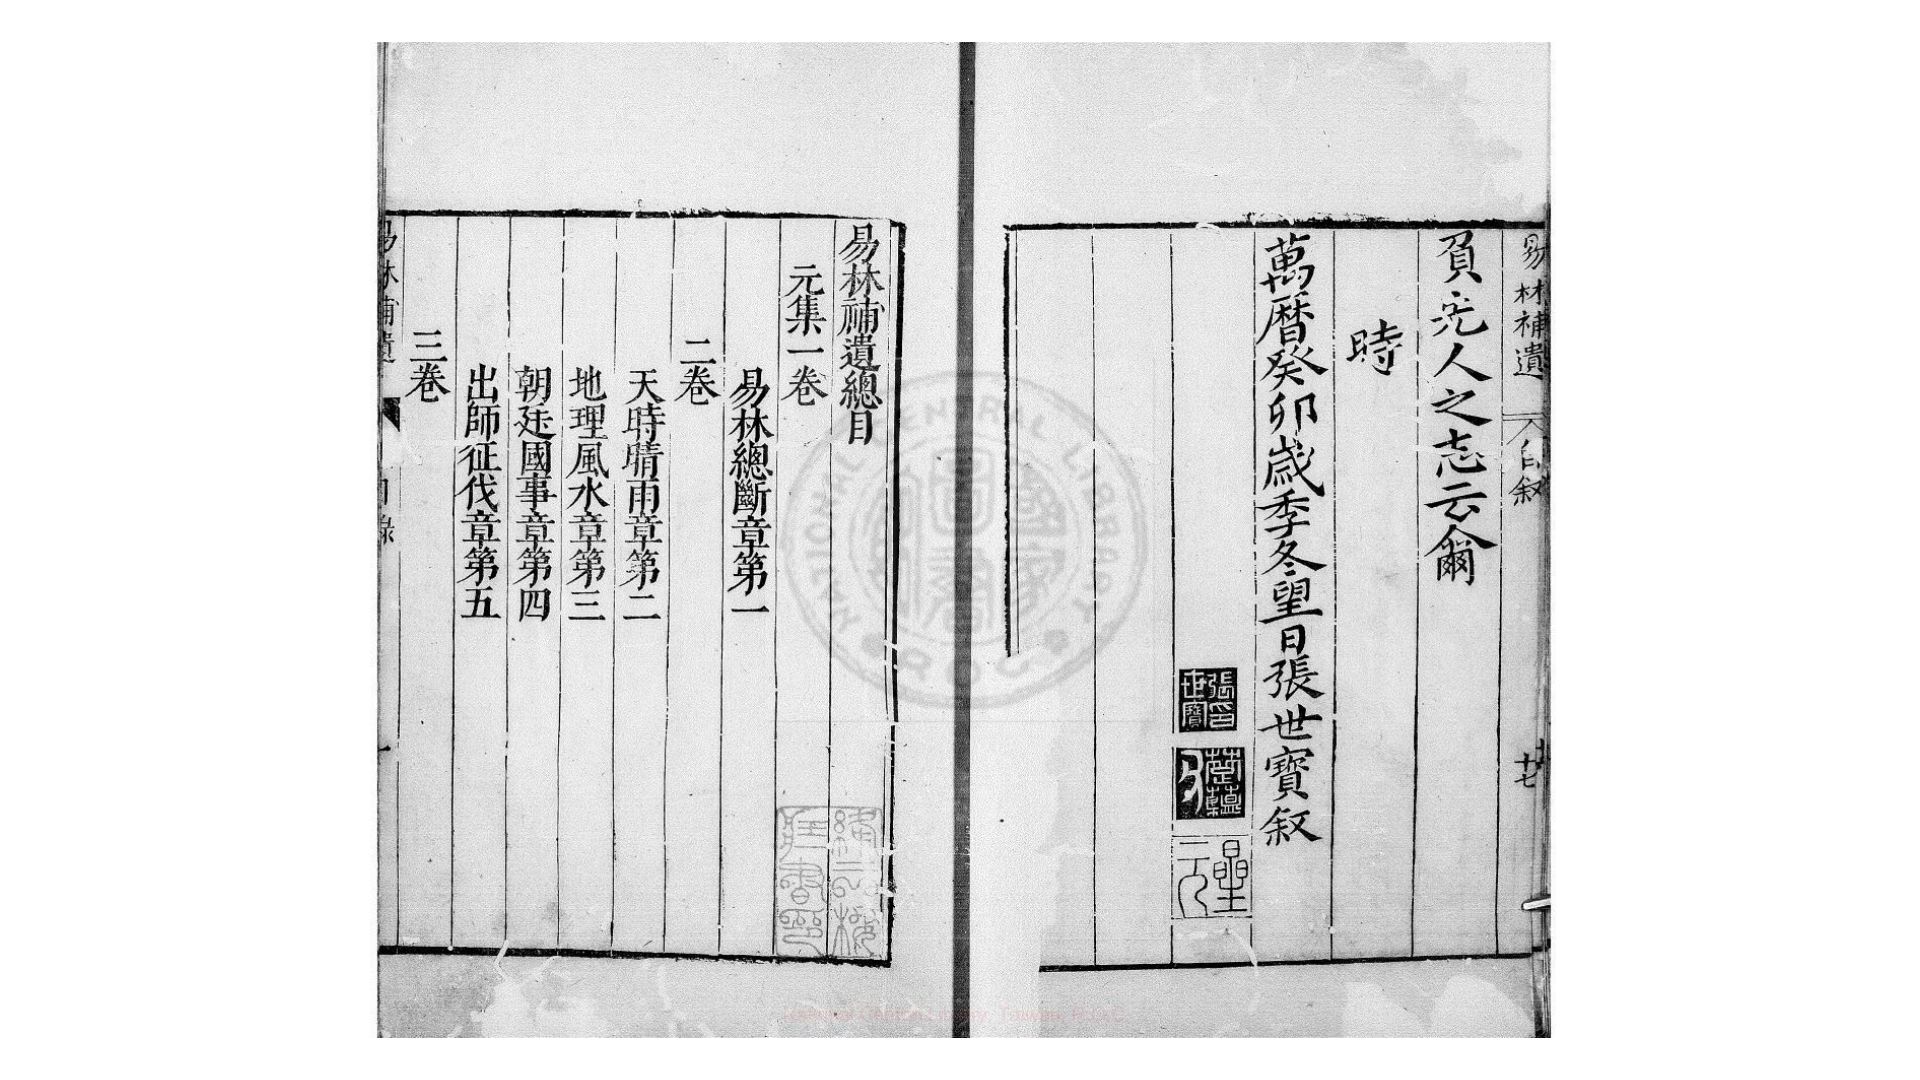 易林補遺
自叙
十七
負先人之志云爾
時
萬曆癸卯歲季冬望日張世寶叙
張世寶印
星元
易林補遺總目
元集一卷
易林總斷章第一
二卷
天時晴雨章第二
地理風水章第三
朝廷國事章第四
出師征伐章第五
三卷
易林補遺
目錄
一
NATIONAL CENTRAL LIBRARY
R.O.C.
國家圖書館
National Central Library, Taiwan, R.O.C